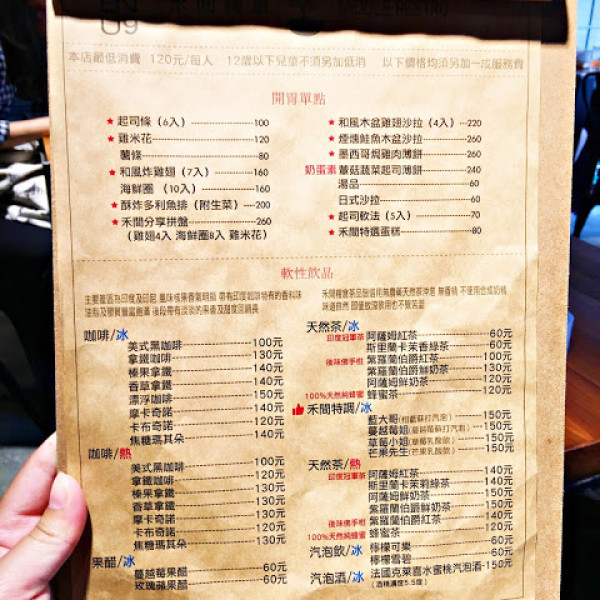 本店最低消費 120元/每人 12歲以下兒童不須另加低消 以下價格均須另加一成服務費
開胃單點
★起司條（6入）100
★雞米花120
薯條80
★和風炸雞翅（7入）160
海鮮圈（10入）160
★酥炸多利魚排（附生菜）200
★禾間分享拼盤260
（雞翅4入 海鮮圈8入 雞米花）
★和風木盆雞翅沙拉（4入）220
★煙燻鮭魚木盆沙拉260
★墨西哥焗雞肉薄餅260
奶蛋素 蘑菇蔬菜起司薄餅240
湯品60
日式沙拉60
★起司軟法（5入）70
★禾間特選蛋糕80
軟性飲品
咖啡/冰
美式黑咖啡100元
拿鐵咖啡130元
榛果拿鐵140元
香草拿鐵140元
漂浮咖啡150元
摩卡奇諾140元
卡布奇諾120元
焦糖瑪其朵140元
咖啡/熱
美式黑咖啡100元
拿鐵咖啡120元
榛果拿鐵130元
香草拿鐵130元
摩卡奇諾130元
卡布奇諾120元
焦糖瑪其朵130元
果醋/冰
蔓越莓果醋60元
玫瑰蘋果醋60元
天然茶/冰
印度冠軍茶 阿薩姆紅茶60元
斯里蘭卡茉香綠茶60元
後味佛手柑 紫羅蘭伯爵紅茶100元
紫羅蘭伯爵鮮奶茶130元
阿薩姆鮮奶茶120元
100%天然純蜂蜜 蜂蜜茶120元
禾間特調/冰
藍大哥（柑藍蘇打汽泡）150元
蔓越莓姐（蔓越莓蘇打汽泡）150元
草莓小姐（草莓乳酸飲）150元
芒果先生（芒果乳酸飲）150元
天然茶/熱
印度冠軍茶 阿薩姆紅茶140元
斯里蘭卡茉莉綠茶140元
阿薩姆鮮奶茶150元
紫羅蘭伯爵鮮奶茶150元
後味佛手柑 紫羅蘭伯爵紅茶140元
100%天然純蜂蜜 蜂蜜茶120元
汽泡飲/冰 檸檬可樂60元
檸檬雪碧60元
汽泡酒/冰 法國克萊喜水蜜桃汽泡酒150元
（酒精濃度5.5度）